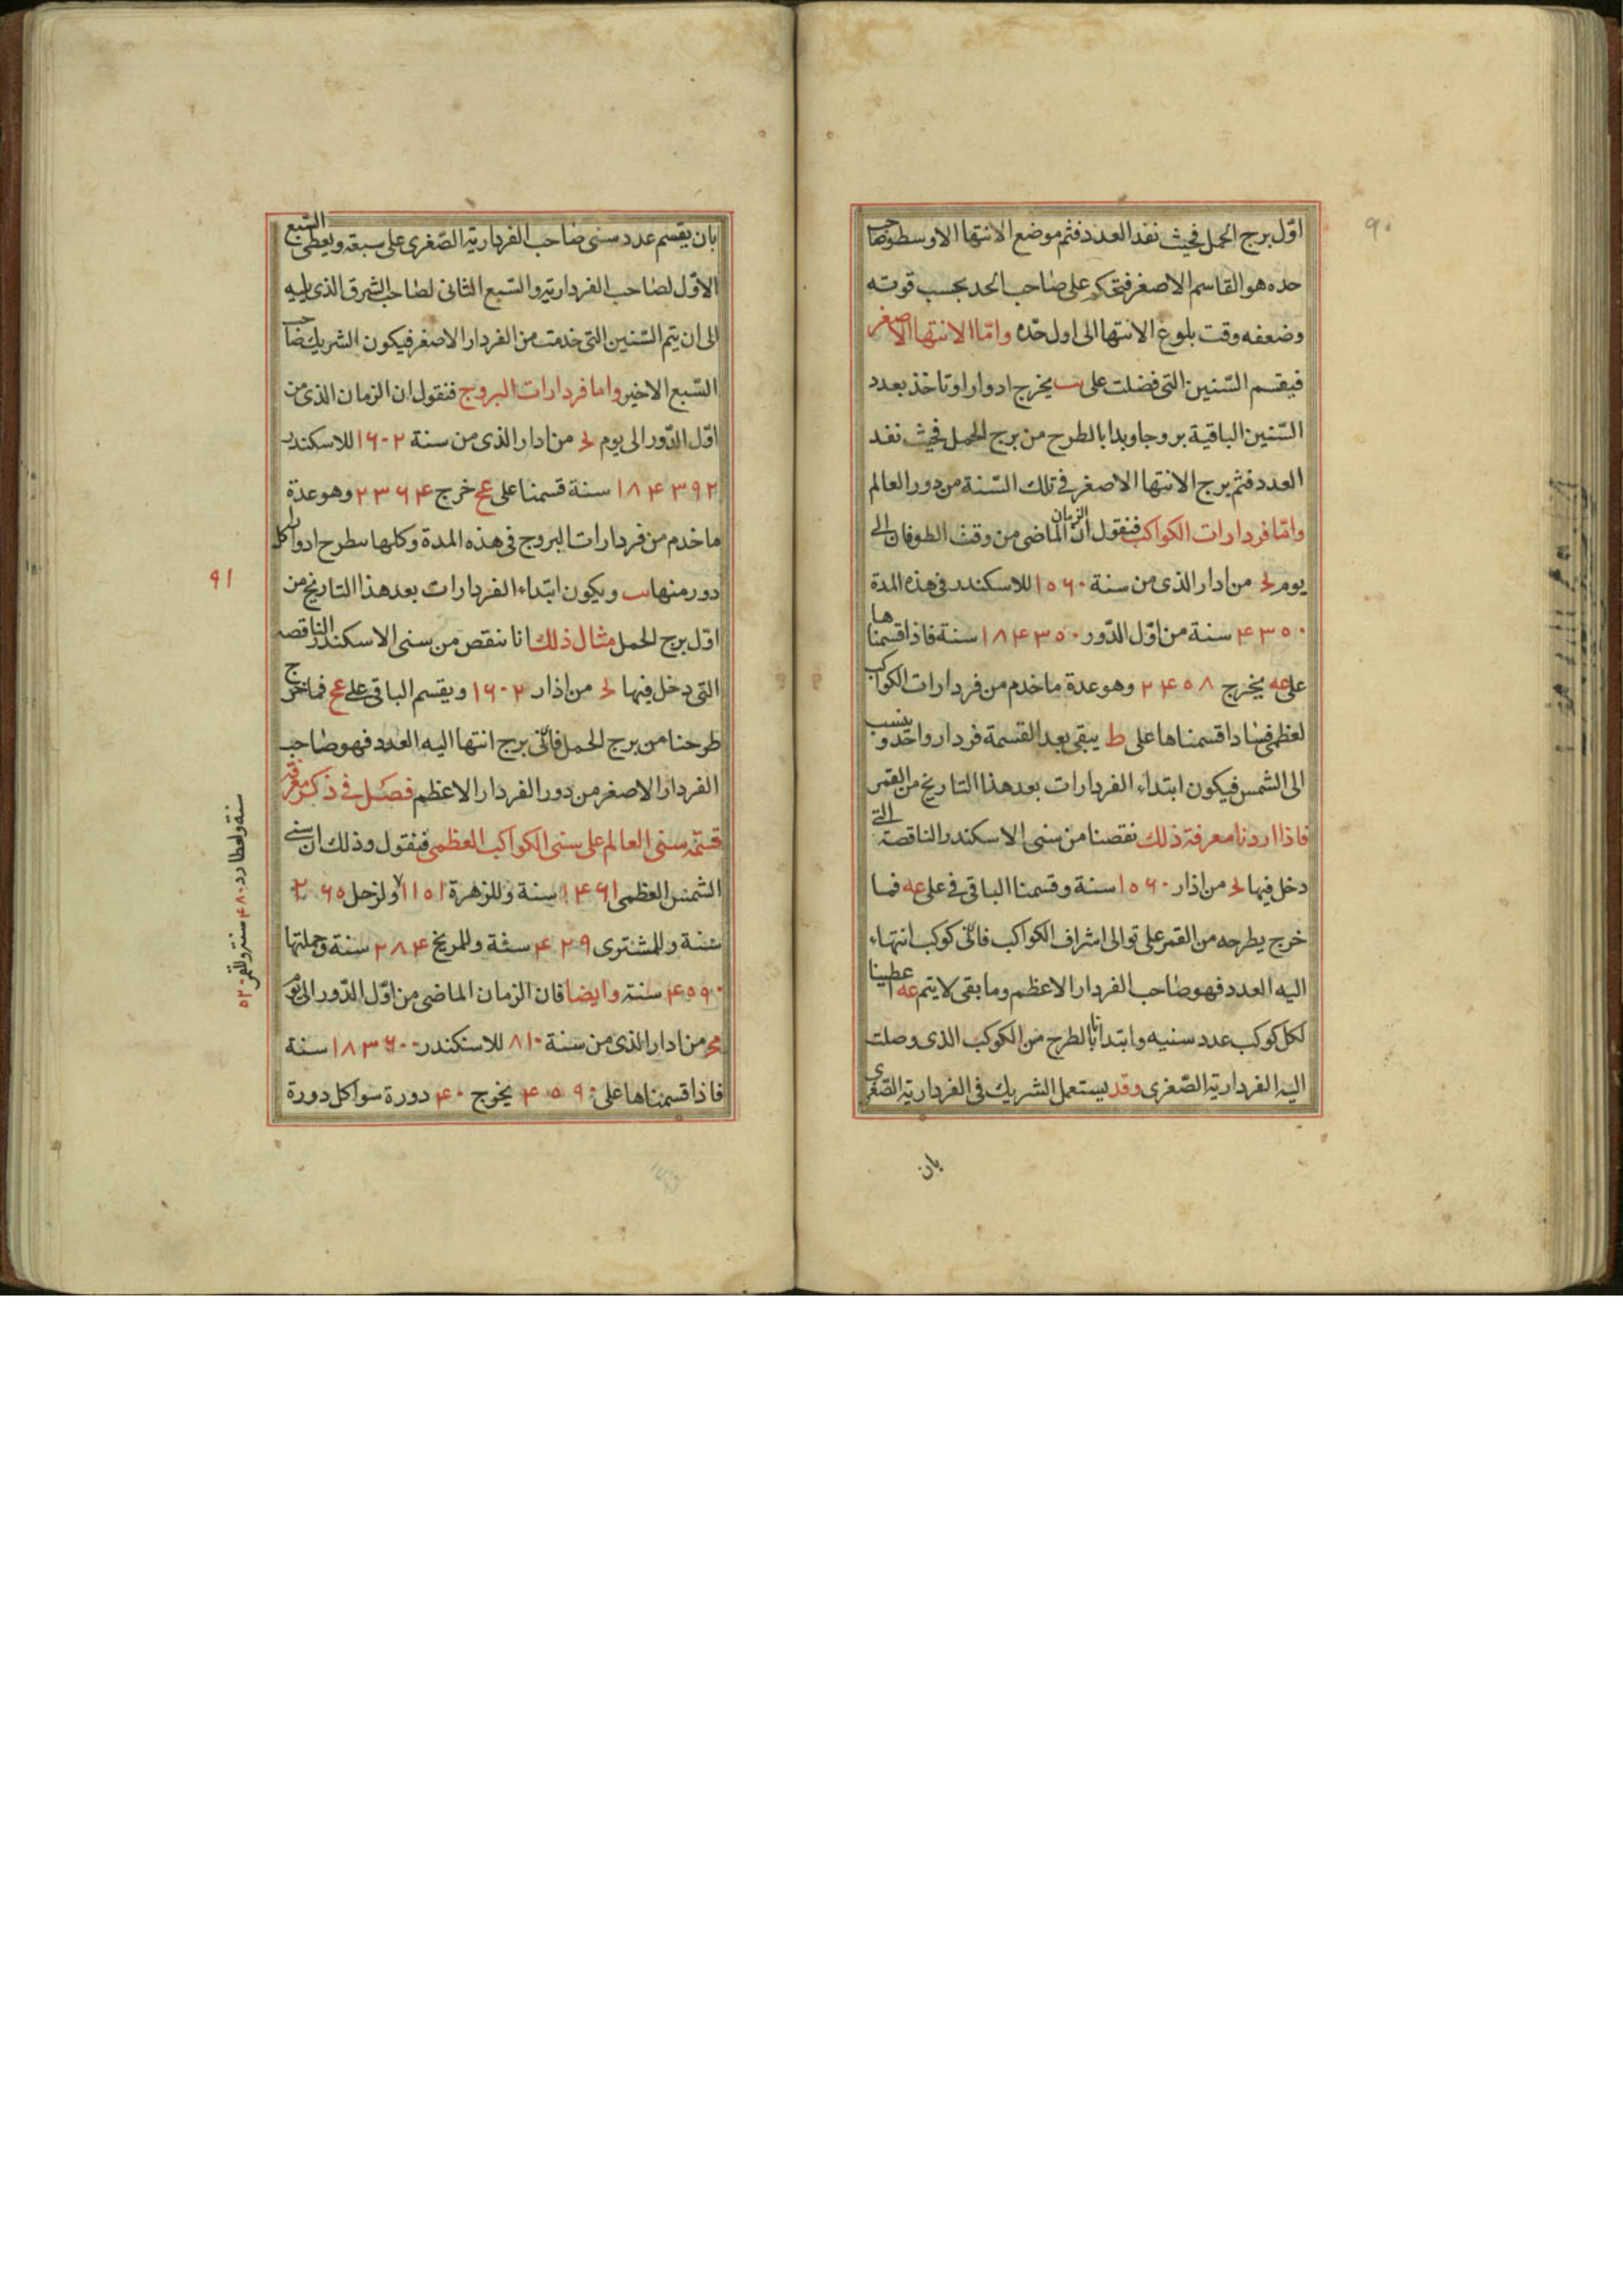 ٩٠
اوّل برج الحمل فحيث نفد العدد فثم موضع الانتها الاوسط وصاحب
حده هو القاسم الاصغر فتحكم على صاحب الحد بحسب قوته
وضعفه وقت بلوغ الانتها الى اول حدّه وامّا الانتها الاصغر
فيقسم السّنين التى فضلت على يب يخرج ادوارا وتاخذ بعدد
السّنين الباقية بروجا ويبدا بالطرح من برج الحمل فحيث نفد
العدد فثم برج الانتها الاصغر فى تلك السّنة من دور العالم
وامّا فردارات الكواكب فنقول انّ الزمان الماضى من وقت الطوفان الى
يوم لح من ادار الذى من سنة ١٥٦٠ للاسكندر فى هذه المدة
٤٣٥٠ سنة من اوّل الدّور ١٨٤٣٥٠ سنة فاذا قسمناها
على عه يخرج ٢٤٥٨ وهو عدة ما خدم من فردارات الكواكب
لعظمى فاذا قسمناها على ط يبقى بعد القسمة فردار واحد وينسب
الى الشمس فيكون ابتداء الفردارات بعد هذا التاريخ من القمر
فاذا اردنا معرفة ذلك نقصنا من سنى الاسكندر الناقصة التى
دخل فيها لح من اذار ١٥٦٠ سنة وقسمنا الباقى فى على عه فما
خرج يطرحه من القمر على توالى اشراف الكواكب فائ كوكب انتهاء
اليه العدد فهو صاحب الفردار الاعظم وما بقى لا يتم عه اعطينا
لكل كوكب عدد سنيه وابتدانا بالطرح من الكوكب الذى وصلت
اليه الفردارية الصّغرى وقد يستعمل الشريك فى الفردارية الصّغرى
بان
بان يقسم عدد سنى صاحب الفردارية الصّغرى على سبعة ويعطى السّبع
الاوّل لصاحب الفردارية والسّبع الثانى لصاحب الشرق الذى يليه
الى ان يتم السّنين التى خدمت من الفردار الاصغر فيكون الشريك صاحب
السّبع الاخير واما فردارات البروج فنقول ان الزمان الذى من
اوّل الدّور الى يوم لح من ادار الذى من سنة ١٦٠٢ للاسكندر
١٨٤٣٩٢ سنة قسمنا على عح خرج ٢٣٦٤ وهو عدة
ما خدم من فردارات البروج فى هذه المدة وكلها بطرح ادوار كل
دور منها يب ويكون ابتداء الفردارات بعد هذا التاريخ من
اوّل برج الحمل مثال ذلك انا ننقص من سنى الاسكندر الناقصه
التى دخل فيها لح من اذار ١٦٠٢ ويقسم الباقى على عح فما خرج
طرحنا من برج الحمل فائ برج انتها اليه العدد فهو صاحب
الفردار الاصغر من دور الفردار الاعظم فصل فى ذكر معرفة
قسمة سنى العالم على سنى الكواكب العظمى فنقول وذلك ان سنى
الشمس العظمى ١٤٦١ سنة وللزهرة ١١٥١ ولزحل ٢٦٥
سنة وللمشترى ٤٢٩ سنة وللمريخ ٢٨٤ سنة وجملتها
٤٥٩٠ سنة وايضا فان الزمان الماضى من اوّل الدّور الى يوم
من ادار الذى من سنة ٨١٠ للاسكندر ١٨٣٦٠٠ سنة
فاذا قسمناها على ٤٥٩٠ يخرج ٤٠ دورة سوا كل دورة
٩١
سنة ولعطارد ٤٨٠ سنة وللقمر ٥٢٠